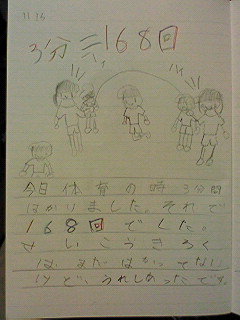 11.16
3分＝168回
今日体育の時3分間
はかりました。それで
168回でした。
さいこうきろく
は、まだはかってない
けど、うれしかったです。